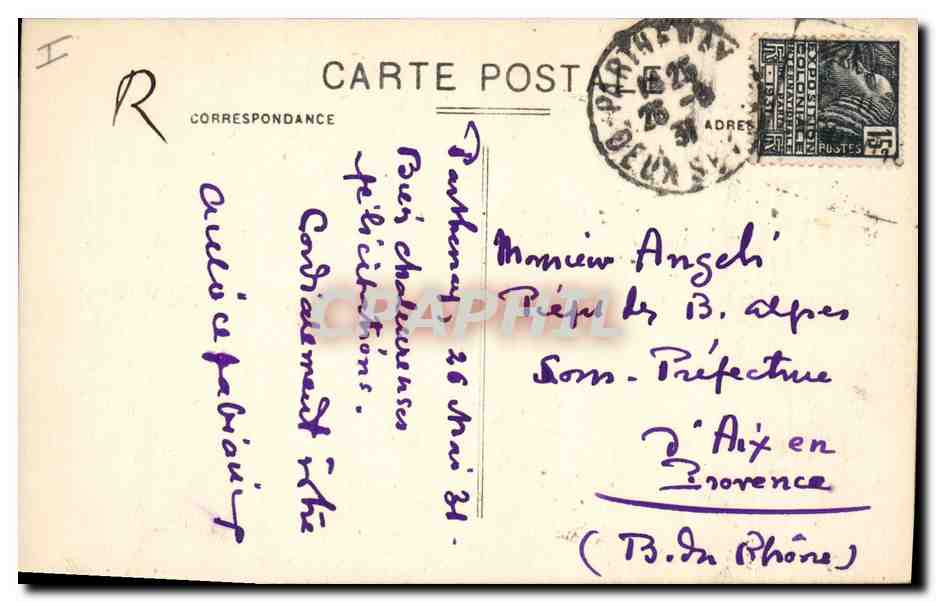 R
CARTE POSTALE
CORRESPONDANCE
ADRES
PARTHENAY
25
26 - 5
31
DEUX SEVRES
EXPOSITION
COLONIALE
INTERNATIONALE
PARIS 1931
POSTES
15c
Parthenay, 26 Mai 31.
Bien chaleureuses
félicitations.
Cordialement vôtre
Monsieur Angeli
Préfet des B. Alpes
Sous-Préfecture
d'Aix en
Provence
(B. du Rhône)
CPAPHIL